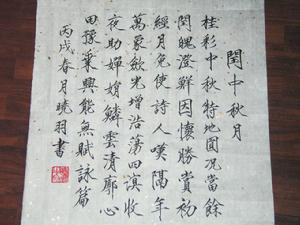 閏中秋月
桂彩中秋特地圓況當餘
閏魄澄鮮因懷勝賞初
經月免使詩人嘆隔年
萬象歛光增浩蕩四溟收
夜助嬋娟鱗雲清廓心
田豫乘興能無賦詠篇
丙戌春月曉羽書